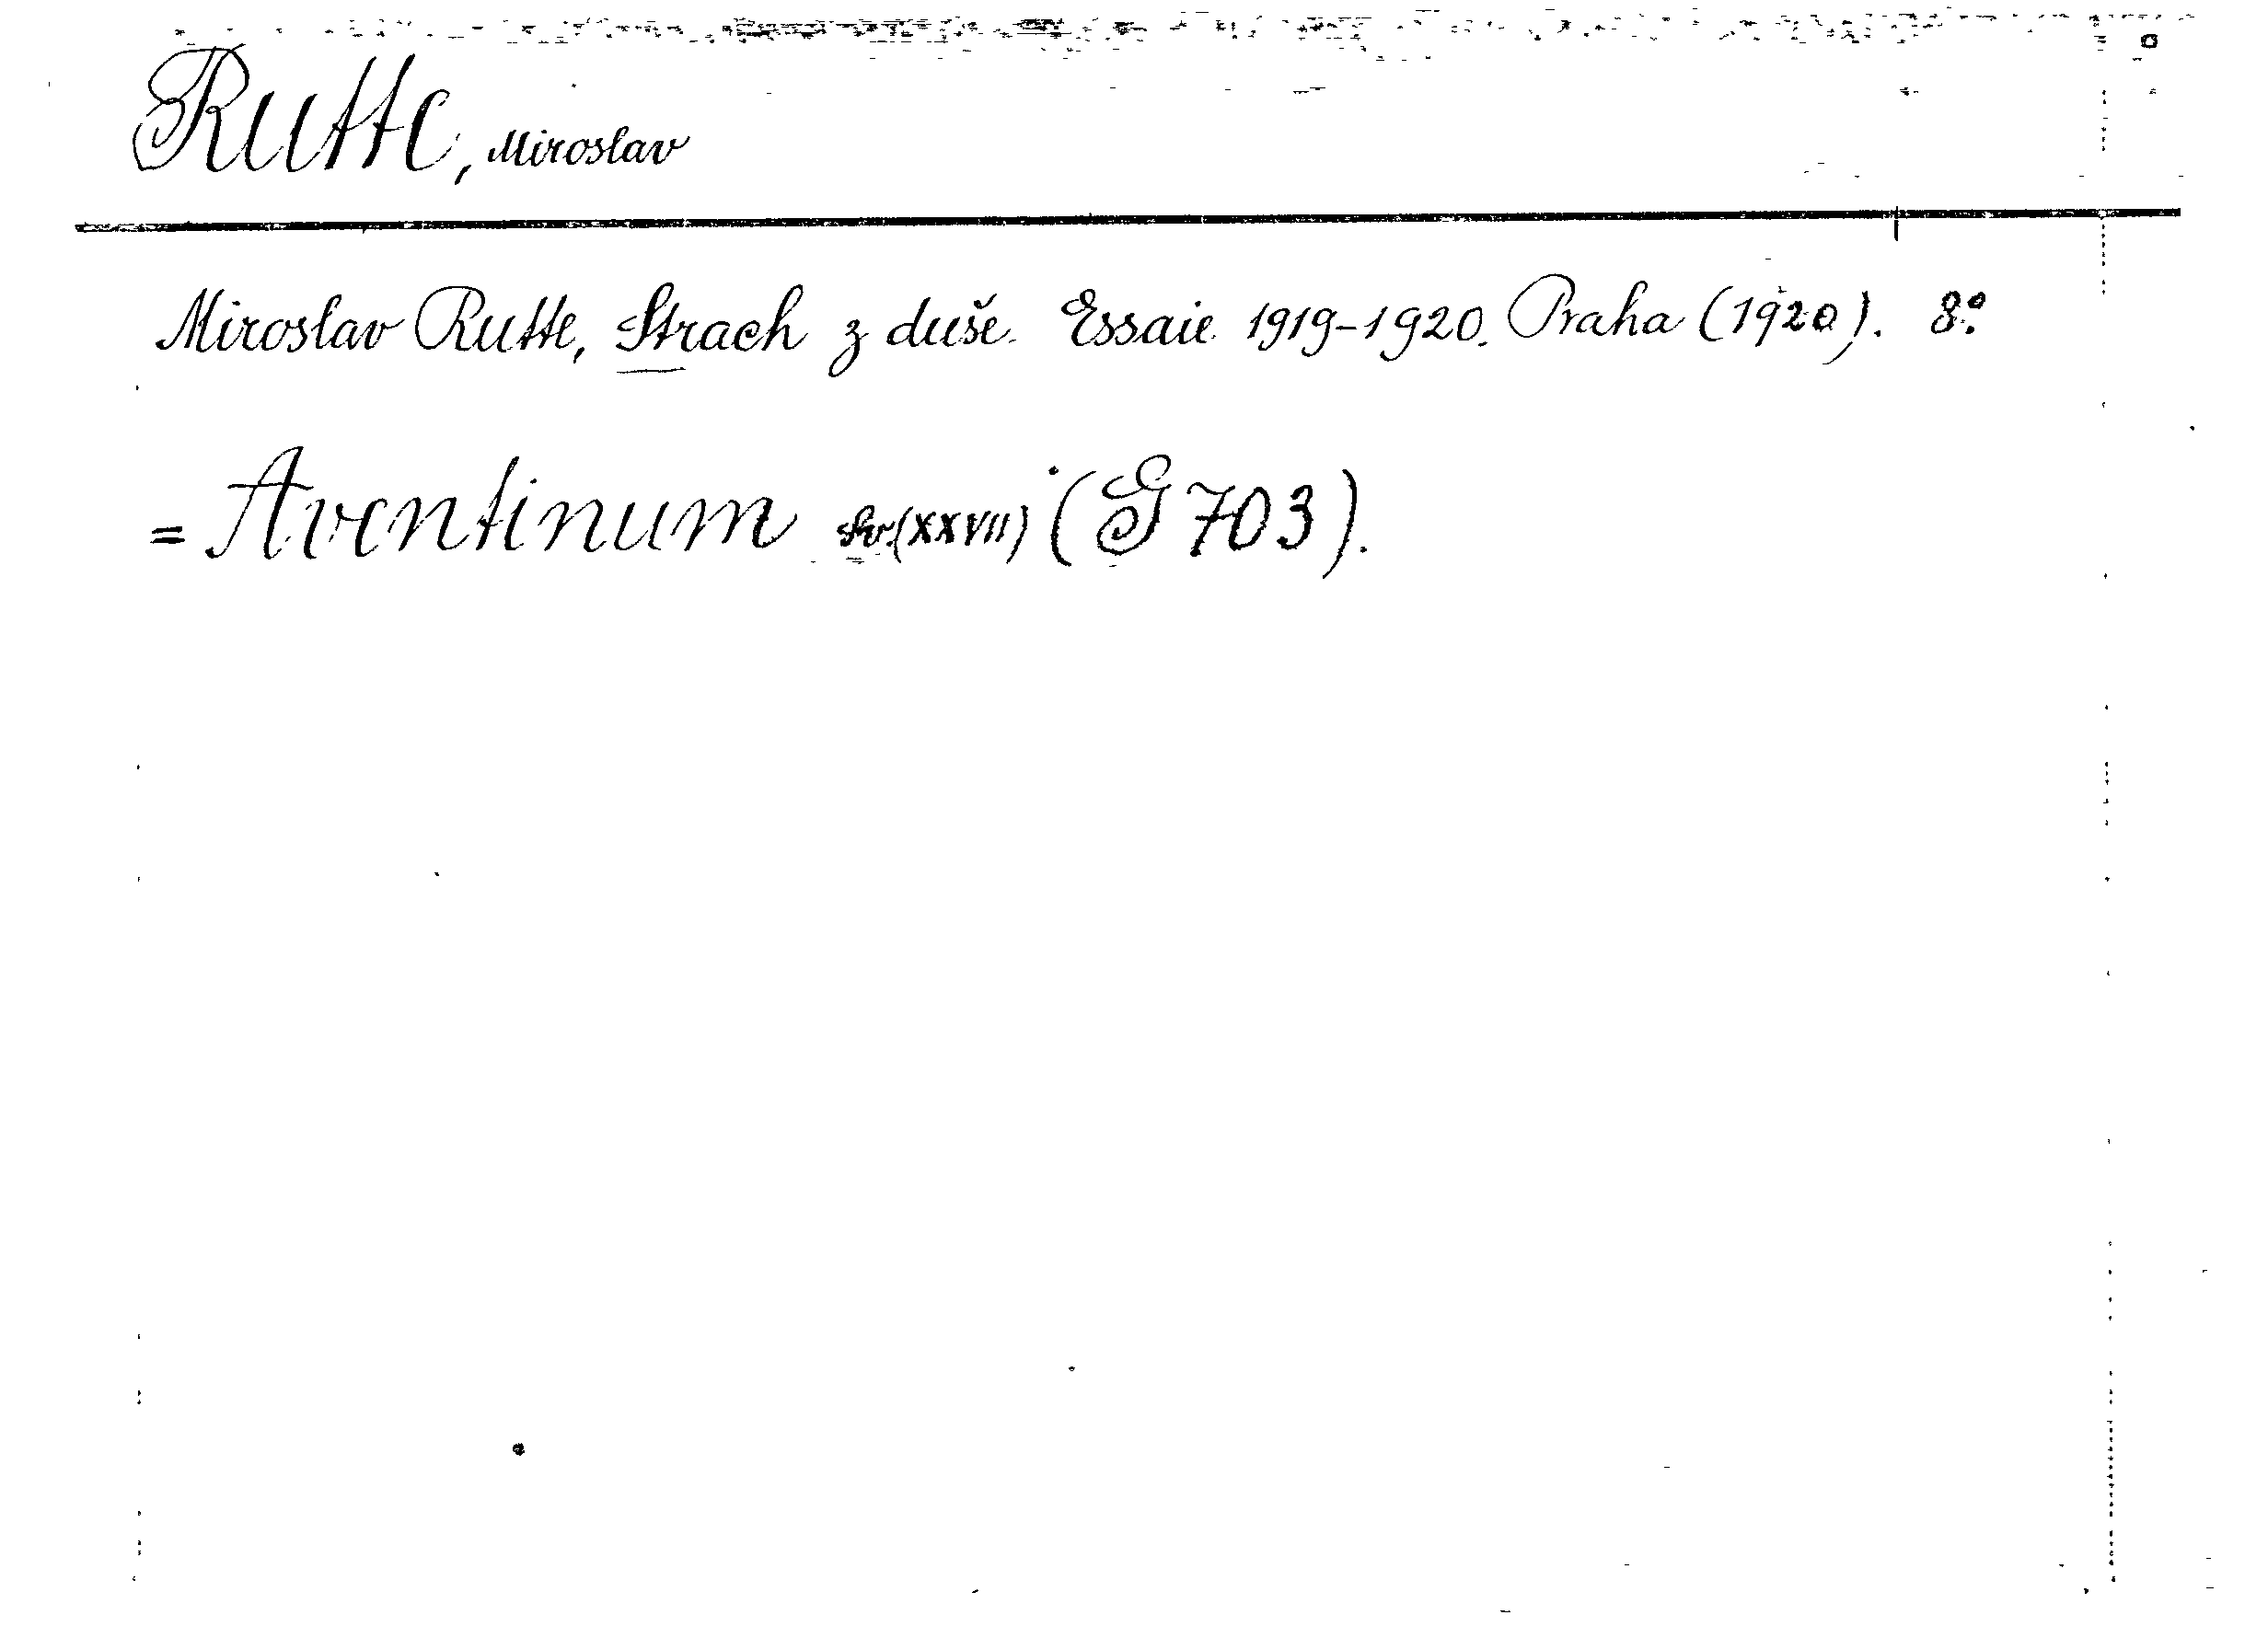 Rutte, Miroslav
Miroslav Rutte, Strach z duše. Essaie 1919-1920. Praha (1920). 8º.
= Aventinum sv. (XXVII) (G 703).